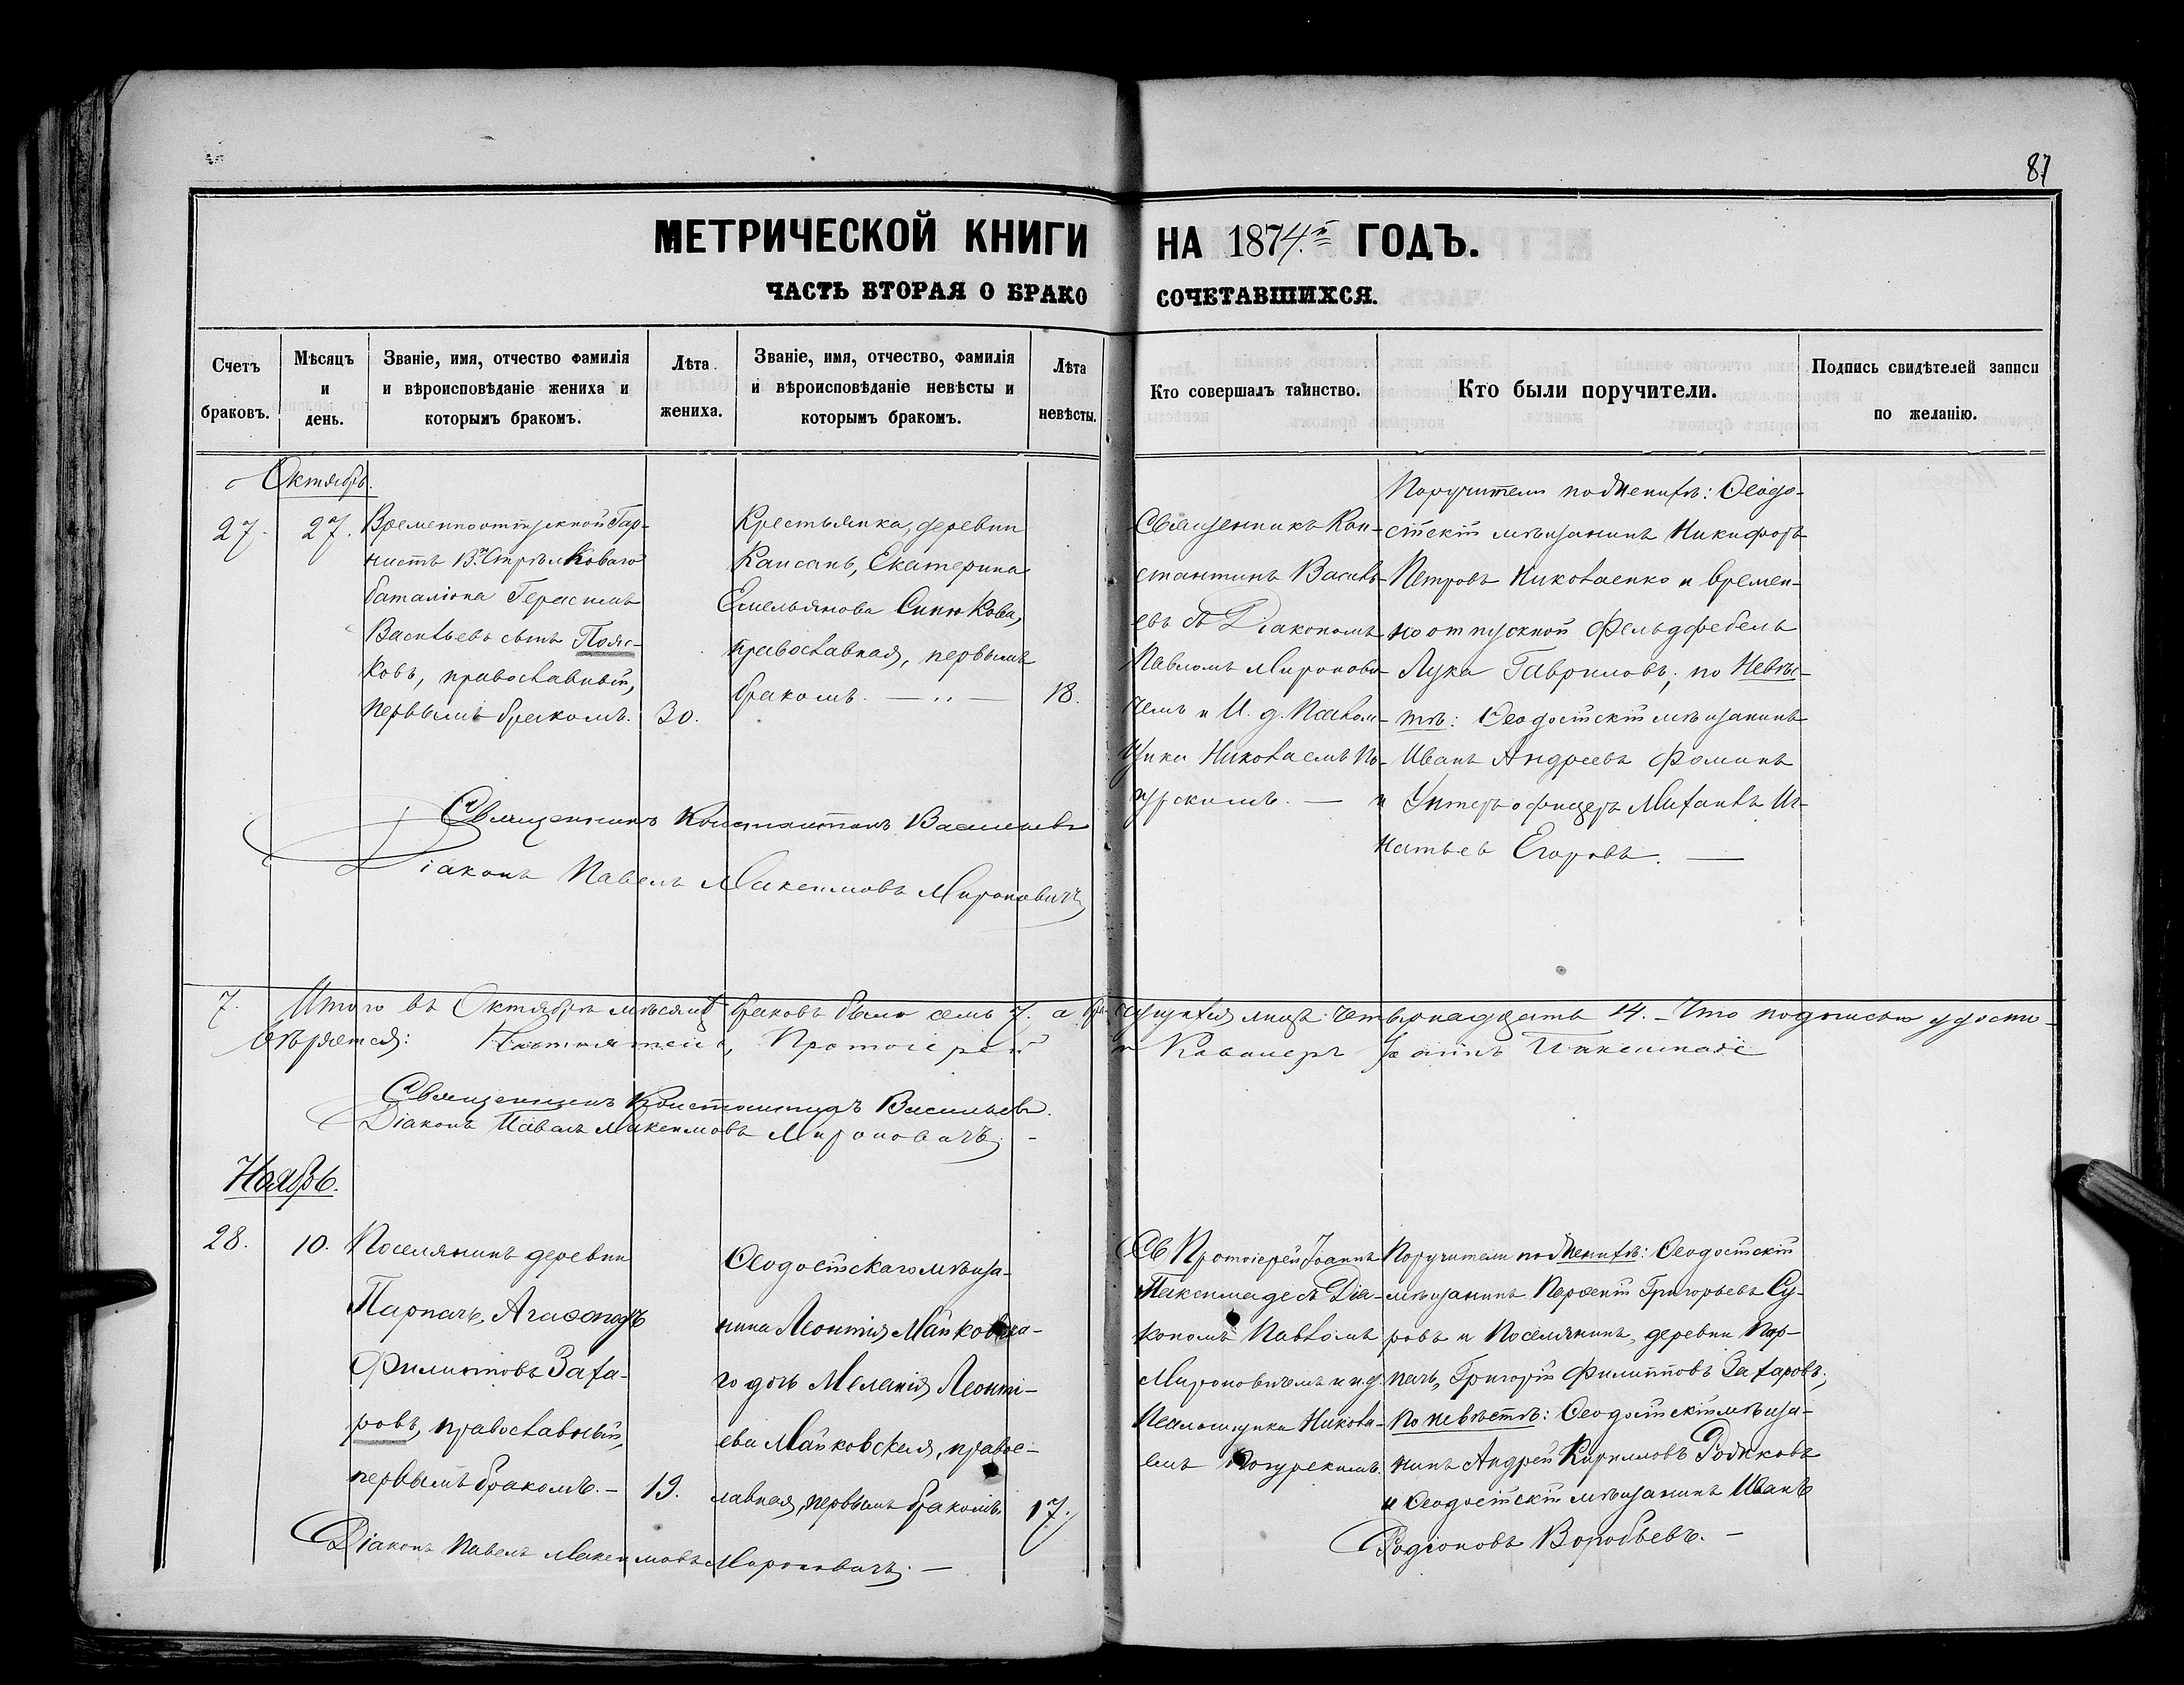 87
МЕТРИЧЕСКОЙ КНИГИ НА 1874.й ГОДЪ.
ЧАСТЬ ВТОРАЯ О БРАКОСОЧЕТАВШИХСЯ.
Счетъ браковъ.
Мѣсяцъ и день.
Званіе, имя, отчество фамилія
и вѣроисповѣданіе жениха и
которымъ бракомъ.
Лѣта жениха.
Званіе, имя, отчество, фамилія
и вѣроисповѣданіе невѣсты и
которымъ бракомъ.
Лѣта невѣсты.
Кто совершалъ таинство.
Кто были поручители.
Подпись свидѣтелей записи
по желанію.
Октябрь.
27.
27.
Временноотпускной Гор-
нистъ Стрѣлковаго
баталіона Герасимъ
Васильевъ сынъ Поляс-
ковъ, православный,
первымъ бракомъ.
30.
Крестьянка, деревни
Капсанъ, Екатерина
Емельянова Синюкова,
православная, первымъ
бракомъ. — „ —
18.
Священникъ Кон-
стантинъ Василь-
евъ съ Діакономъ
Павломъ Миронови-
чемъ и И. д. Псалом-
щика Николаемъ По-
гурскимъ. —
Поручители по Женихѣ: Ѳеодо-
сійскій мѣщанинъ Никифоръ
Петровъ Николаенко и времен-
ноотпускной Фельдфебель
Лука Гавриловъ; по Невѣс-
тѣ: Ѳеодосійскій мѣщанинъ
Иванъ Андреевъ Фоминъ
и Унтеръ офицеръ Михаилъ Иг-
натьевъ Егоровъ. —
Священникъ Константинъ Васильевъ
Діаконъ Павелъ Максимовъ Мироновичъ
7. Итого въ Октябрѣ мѣсяцѣ браковъ было семь 7. а брачущихся лицъ четырнадцать 14. – Что подписью удосто-
вѣряется: Настоятель, Протоіерей и Кавалеръ Іоаннъ Паксимаде
Священникъ Константинъ Васильевъ.
Діаконъ Павелъ Максимовъ Мироновичъ. –
Ноябрь.
28.
10.
Поселянинъ деревни
Парпачъ, Агаѳонъ
Филиповъ Заха-
ровъ, православный,
первымъ бракомъ. –
19.
Ѳеодосійскаго мѣща-
нина Леонтія Майковска-
го дочь Меланія Леонті-
ева Майковская, правос-
лавная, первымъ бракомъ.
17.
Протоіерей Іоаннъ
Паксимаде съ Діа-
кономъ Павломъ
Мироновичемъ и и. д.
Псаломщика Никола-
емъ Погурскимъ.
Поручители по Женихѣ: Ѳеодосійскій
мѣщанинъ Григорьевъ Су-
ровъ и Поселянинъ, деревни Пар-
пачъ, Григорій Филипповъ Захаровъ;
По невѣстѣ: Ѳеодосійскій мѣща-
нинъ Андрей Кириловъ
и Ѳеодосійскій мѣщанинъ Иванъ
Родіоновъ Воробьевъ. –
Діаконъ Павелъ Максимовъ Мироновичъ. —